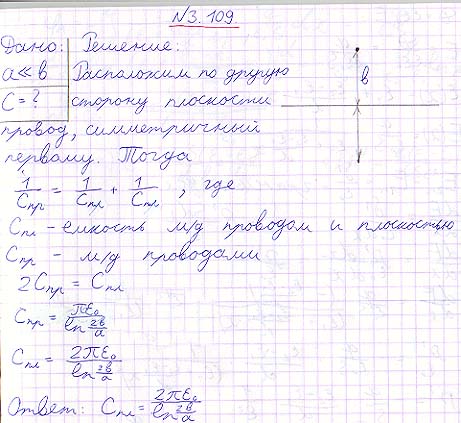 №3.109
Дано: Решение:
a≪b Расположим по другую
C=? сторону плоскости
b
провод, симметричный
первому. Тогда
1/Cпр = 1/Cпл + 1/Cпл , где
Cпл - емкость м/д проводом и плоскостью
Cпр - м/д проводами
2Cпр = Cпл
Cпр = πε₀/ln 2b/a
Cпл = 2πε₀/ln 2b/a
Ответ: Cпл = 2πε₀/ln 2b/a